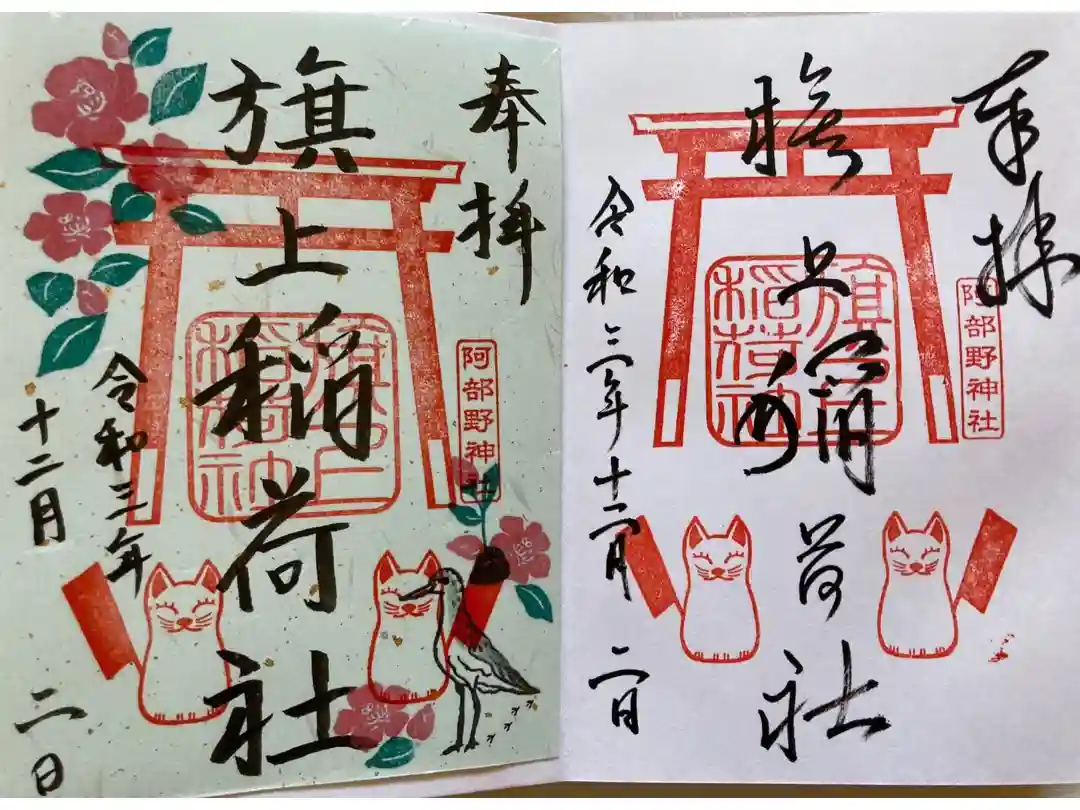 奉拝
旗上稲荷社
阿部野神社
旗上
稲荷神
令和三年
十二月
二日
奉拝
旗上稲荷社
阿部野神社
旗上
稲荷神
令和三年十二月二日